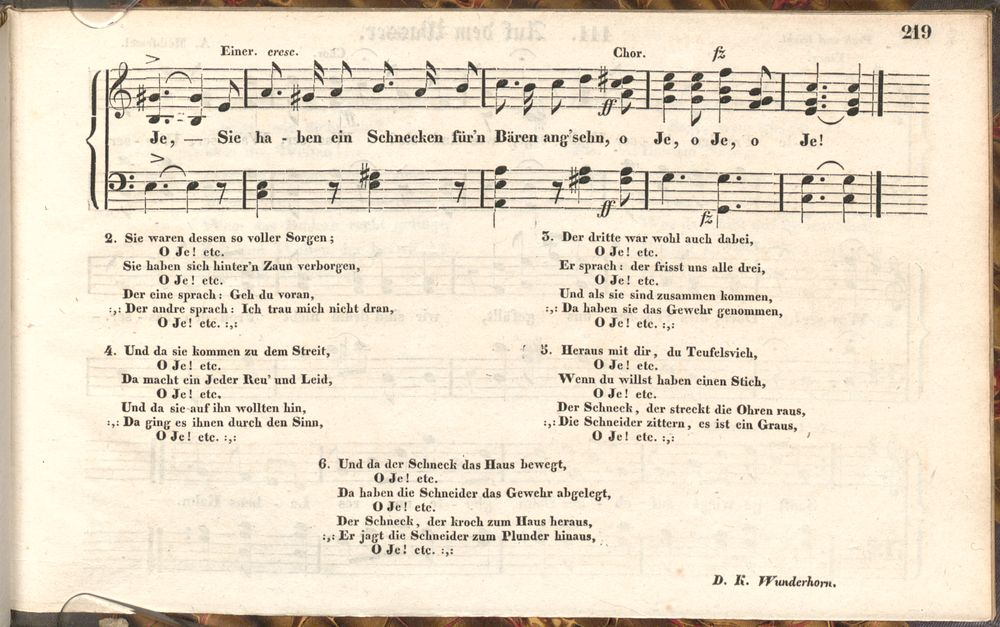 219
Einer. cresc. Chor. fz
ff
Je, — Sie ha - ben ein Schnecken für'n Bären ang'sehn, o Je, o Je, o Je!
ff fz
2. Sie waren dessen so voller Sorgen;
O Je! etc.
Sie haben sich hinter'n Zaun verborgen,
O Je! etc.
Der eine sprach: Geh du voran,
:,: Der andre sprach: Ich trau mich nicht dran,
O Je! etc. :,:
3. Der dritte war wohl auch dabei,
O Je! etc.
Er sprach: der frisst uns alle drei,
O Je! etc.
Und als sie sind zusammen kommen,
:,: Da haben sie das Gewehr genommen,
O Je! etc. :,:
4. Und da sie kommen zu dem Streit,
O Je! etc.
Da macht ein Jeder Reu' und Leid,
O Je! etc.
Und da sie auf ihn wollten hin,
:,: Da ging es ihnen durch den Sinn,
O Je! etc. :,:
5. Heraus mit dir, du Teufelsvieh,
O Je! etc.
Wenn du willst haben einen Stich,
O Je! etc.
Der Schneck, der streckt die Ohren raus,
:,: Die Schneider zittern, es ist ein Graus,
O Je! etc. :,:
6. Und da der Schneck das Haus bewegt,
O Je! etc.
Da haben die Schneider das Gewehr abgelegt,
O Je! etc.
Der Schneck, der kroch zum Haus heraus,
:,: Er jagt die Schneider zum Plunder hinaus,
O Je! etc. :,:
D. K. Wunderhorn.